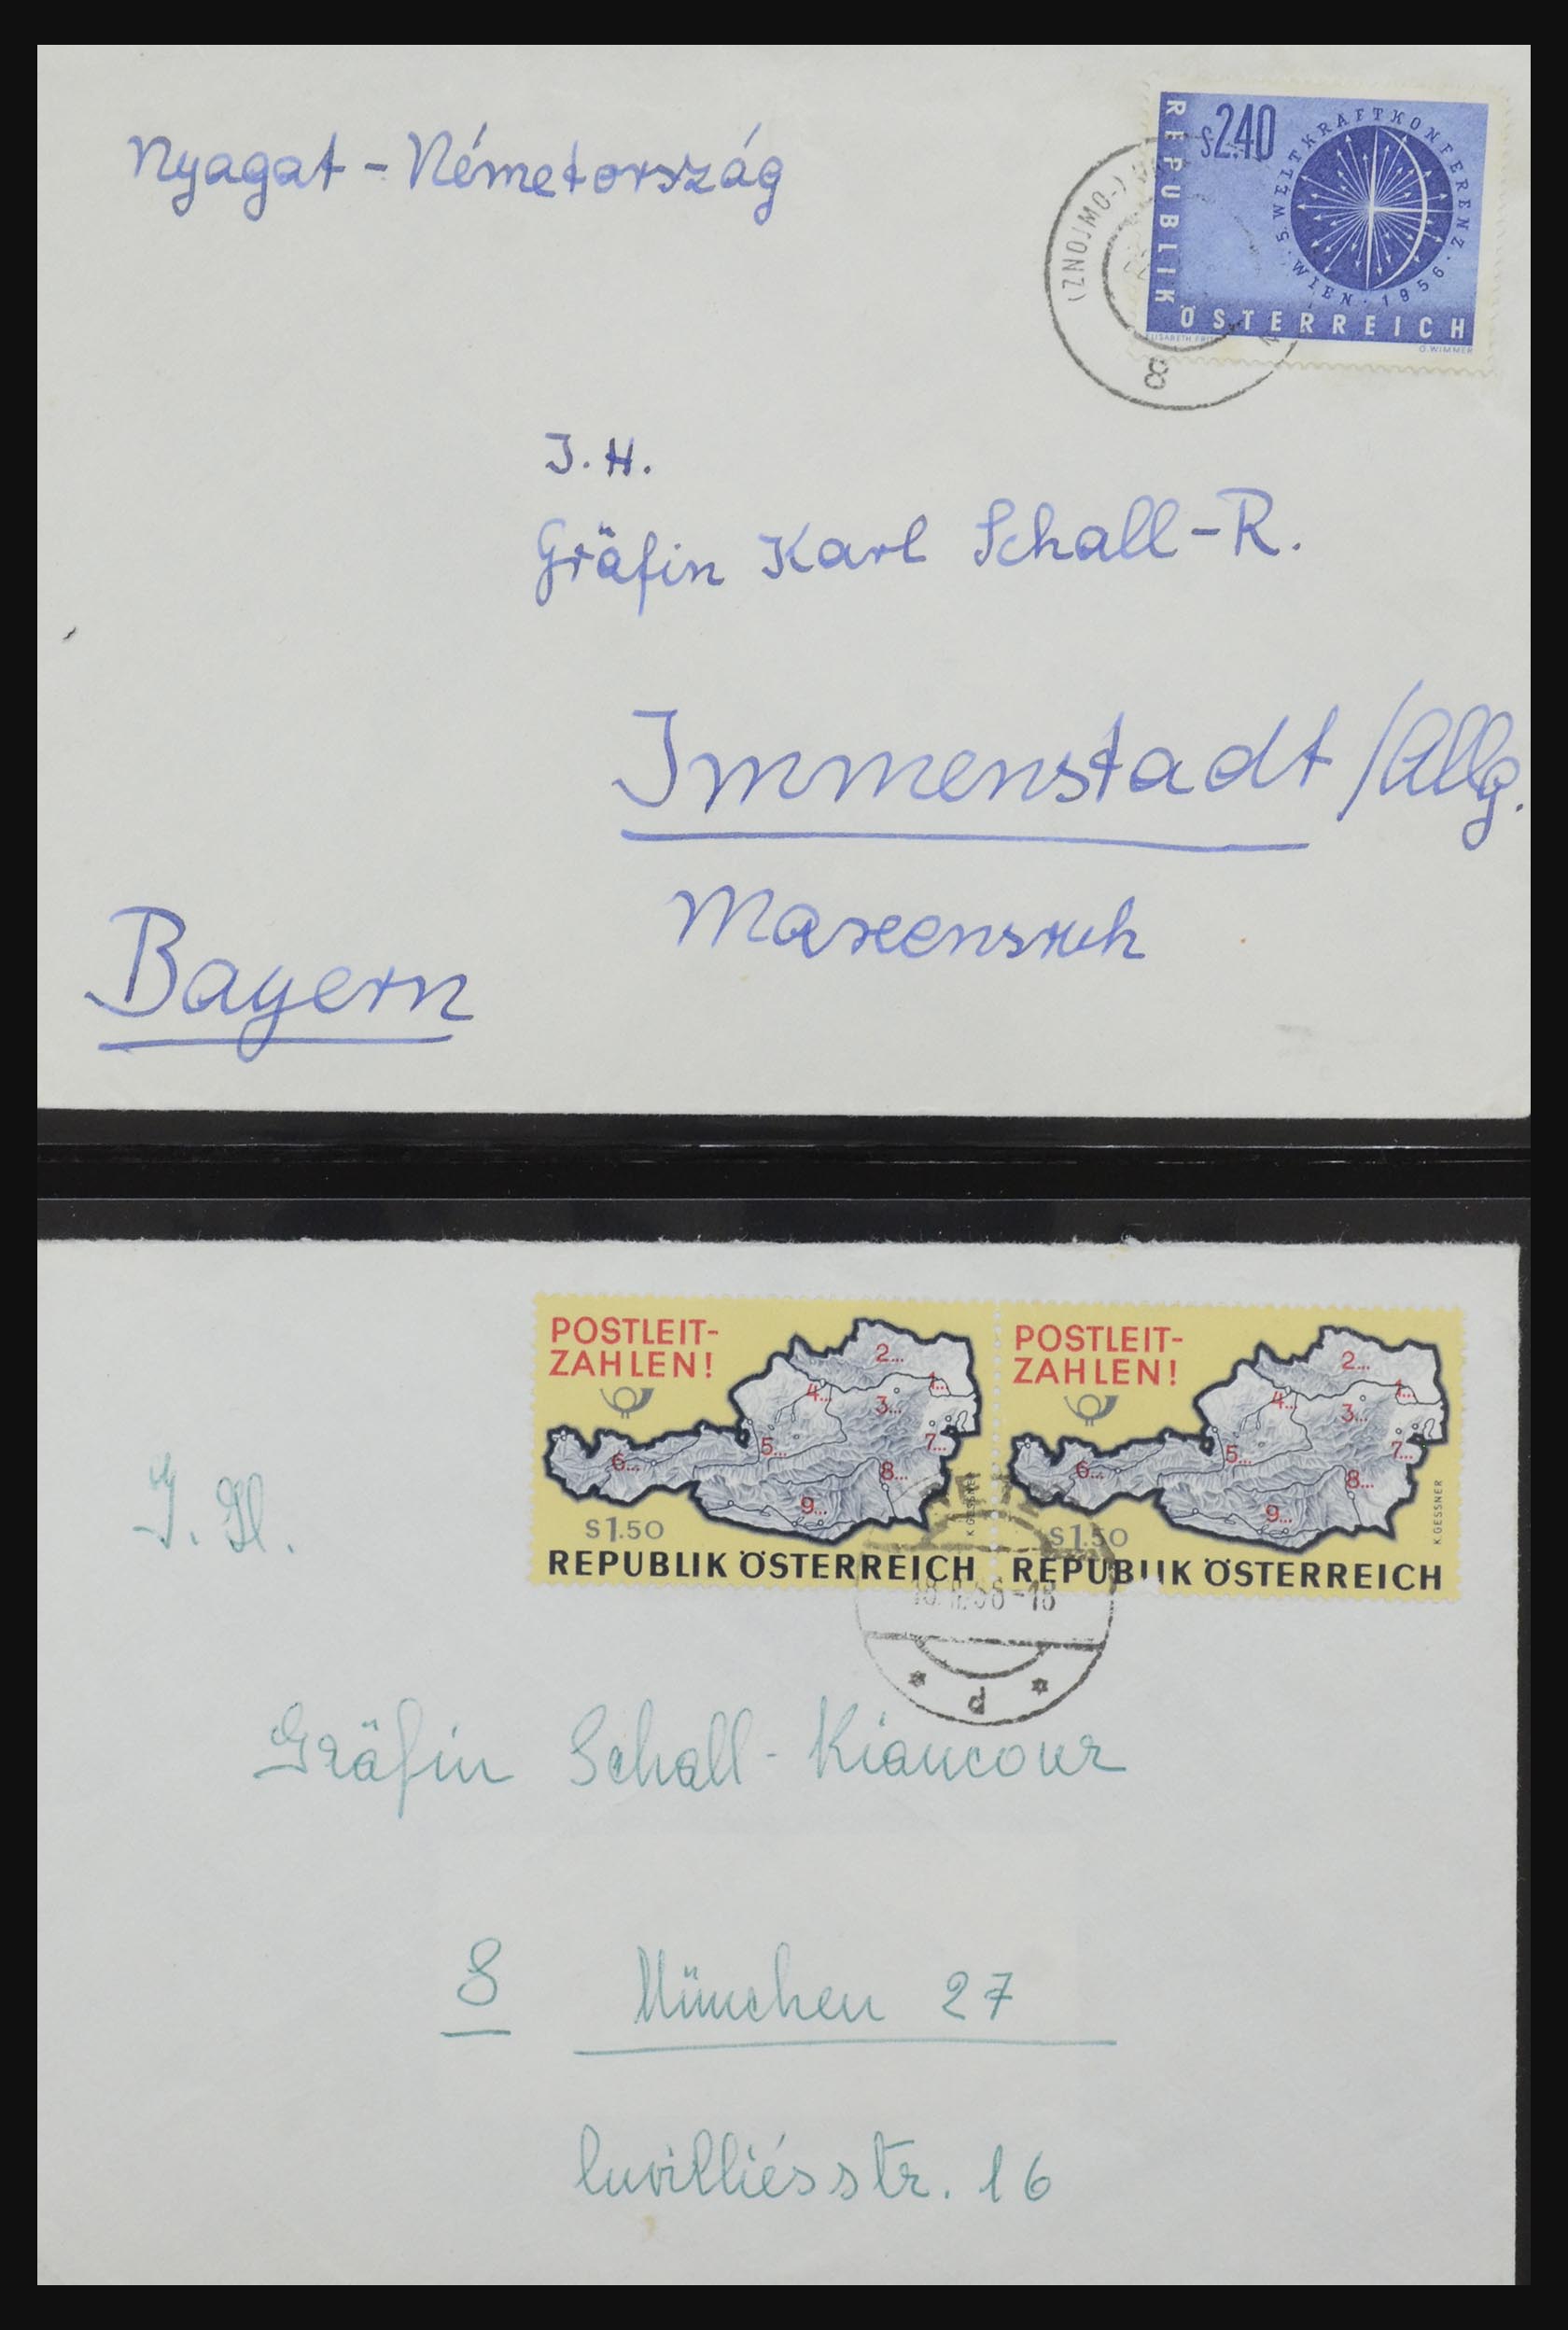 Nyagat - Németország
S 2.40
5. WELTKRAFTKONFERENZ · WIEN · 1956 ·
REPUBLIK
ÖSTERREICH
O. WIMMER
(ZNOJMO-)
8
J. H.
Gräfin Karl Schall-R.
Immenstadt /Allg.
Mareensruh
Bayern
POSTLEIT-
ZAHLEN!
2...
1...
4...
3...
7...
5...
6...
8...
9...
K GESSNER
S 1.50
REPUBLIK ÖSTERREICH
POSTLEIT-
ZAHLEN!
2...
1...
4...
3...
7...
5...
6...
8...
9...
K GESSNER
S 1.50
REPUBLIK ÖSTERREICH
-18
* d *
J. H.
Gräfin Schall-Riaucour
8 München 27
Cuvilliésstr. 16